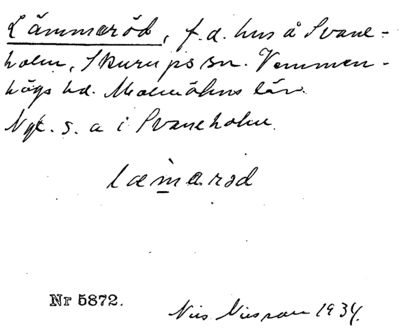 Lämmaröd, f.d. hus å Svane-
holm, Skurups sn. Vemmen-
högs hd. Malmöhus län.
Ngt. s. a i Svaneholm.
læmarөd
Nr 5872.
Nils Nilsson 1934.